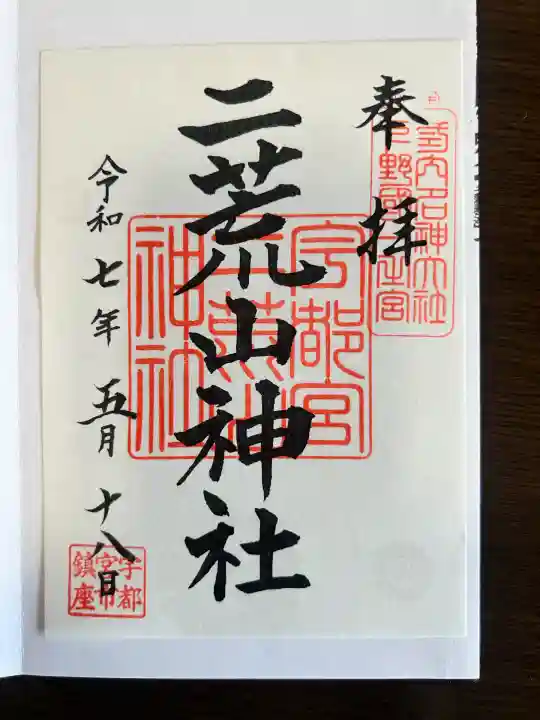 奉拝
式内名神大社
下野國一之宮
二荒山神社
宇都宮
二荒山
神社
令和七年五月十八日
宇都
宮市
鎮座